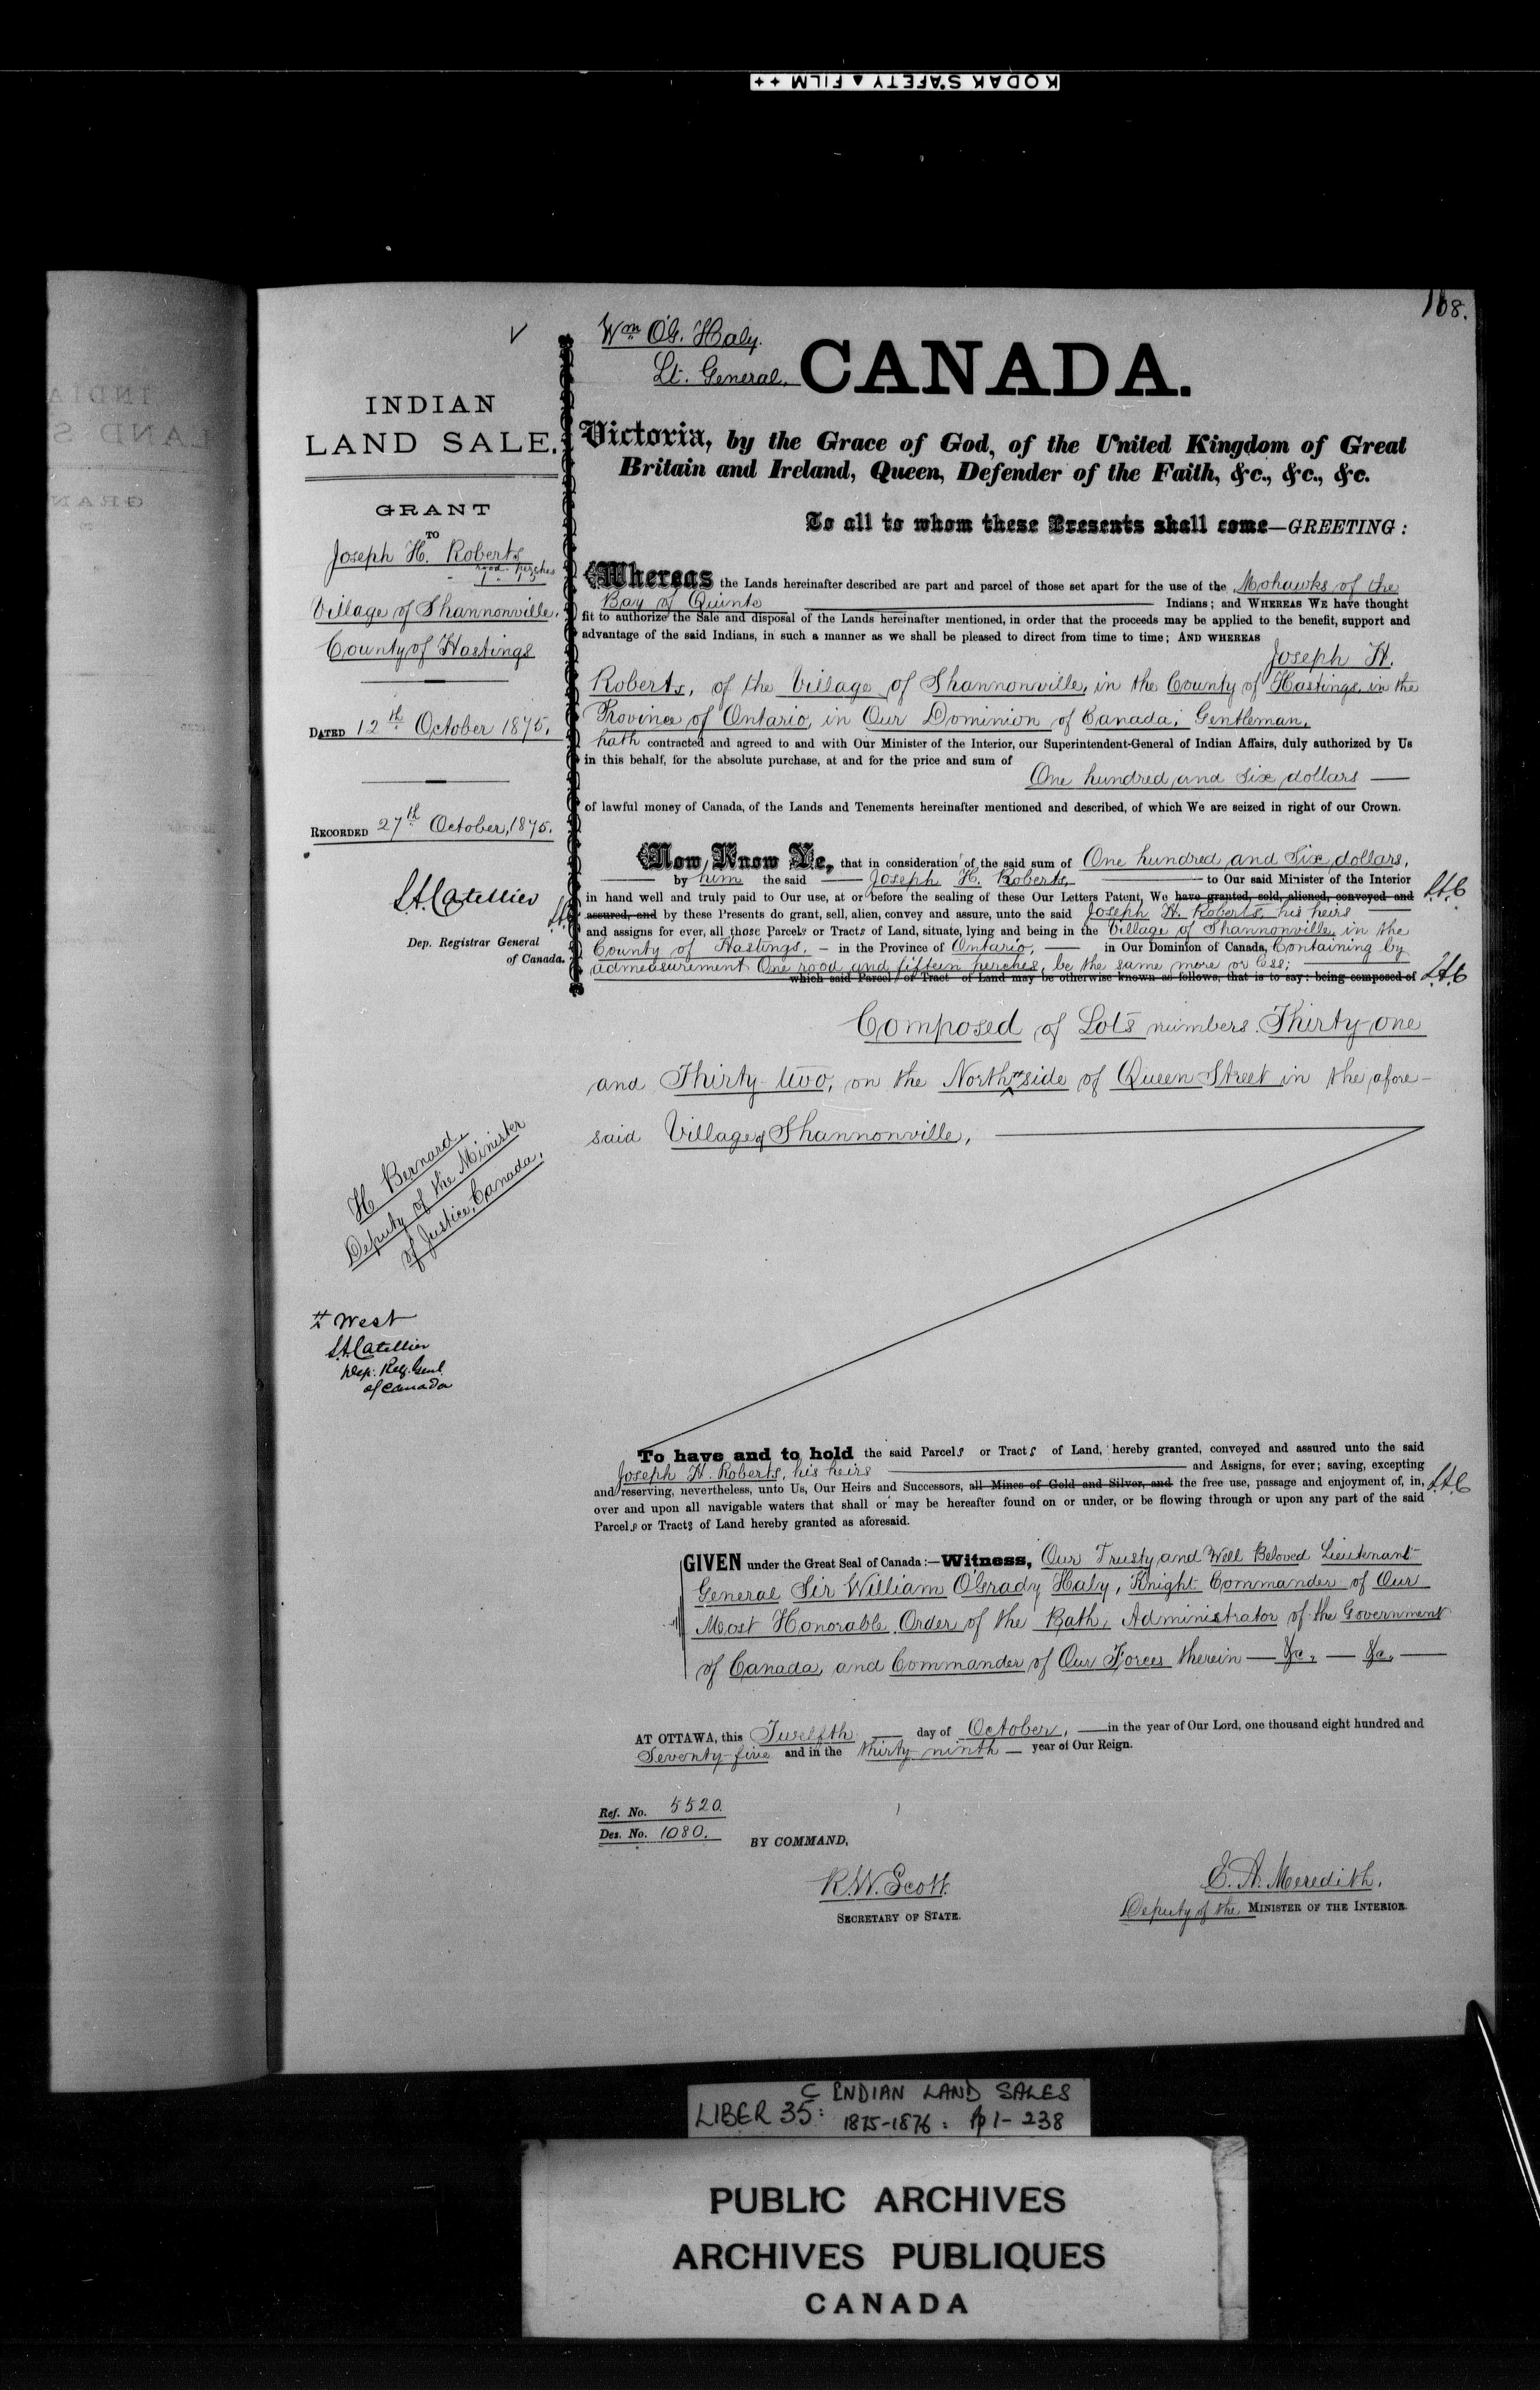 KODAK SAFETY ▲ FILM ++
168.
Wm O'G. Haly.
Lt. General.
CANADA.
INDIAN
LAND SALE.
GRANT
TO
Joseph H. Roberts
rood perches
1 - 15
Village of Shannonville.
County of Hastings
DATED 12th October 1875.
RECORDED 27th October, 1875.
L.A. Catellier
Dep. Registrar General
of Canada.
H Bernard
Deputy of the Minister
of Justice, Canada.
West
L.A. Catellier
Dep: Reg. Genl.
of Canada
Victoria, by the Grace of God, of the United Kingdom of Great
Britain and Ireland, Queen, Defender of the Faith, &c., &c., &c.
To all to whom these Presents shall come—GREETING:
Whereas the Lands hereinafter described are part and parcel of those set apart for the use of the Mohawks of the
Bay of Quinte Indians; and WHEREAS WE have thought
fit to authorize the Sale and disposal of the Lands hereinafter mentioned, in order that the proceeds may be applied to the benefit, support and
advantage of the said Indians, in such a manner as we shall be pleased to direct from time to time; AND WHEREAS
Joseph H.
Roberts, of the Village of Shannonville, in the County of Hastings, in the
Province of Ontario, in Our Dominion of Canada, Gentleman,
hath contracted and agreed to and with Our Minister of the Interior, our Superintendent-General of Indian Affairs, duly authorized by Us
in this behalf, for the absolute purchase, at and for the price and sum of
One hundred and six dollars —
of lawful money of Canada, of the Lands and Tenements hereinafter mentioned and described, of which We are seized in right of our Crown.
Now Know Ye, that in consideration of the said sum of One hundred and Six dollars,
by him the said Joseph H. Roberts, to Our said Minister of the Interior
in hand well and truly paid to Our use, at or before the sealing of these Our Letters Patent, We have granted, sold, aliened, conveyed and L.A.C
assured, and by these Presents do grant, sell, alien, convey and assure, unto the said Joseph H. Roberts, his heirs
and assigns for ever, all those Parcels or Tracts of Land, situate, lying and being in the Village of Shannonville, in the
County of Hastings, — in the Province of Ontario, — in Our Dominion of Canada, Containing by
admeasurement One rood and fifteen perches, be the same more or less;
which said Parcel or Tract of Land may be otherwise known as follows, that is to say: being composed of L.A.C
Composed of Lots numbers Thirty-one
and Thirty-two, on the North side of Queen Street in the afore-
said Village of Shannonville,
To have and to hold the said Parcels or Tracts of Land, hereby granted, conveyed and assured unto the said
Joseph H. Roberts, his heirs and Assigns, for ever; saving, excepting
and reserving, nevertheless, unto Us, Our Heirs and Successors, all Mines of Gold and Silver, and the free use, passage and enjoyment of, in, L.A.C
over and upon all navigable waters that shall or may be hereafter found on or under, or be flowing through or upon any part of the said
Parcels or Tracts of Land hereby granted as aforesaid.
GIVEN under the Great Seal of Canada:—Witness, Our Trusty and Well Beloved Lieutenant-
General Sir William O'Grady Haly, Knight Commander of Our
Most Honorable Order of the Bath, Administrator of the Government
of Canada, and Commander of Our Forces therein — &c, — &c, —
AT OTTAWA, this Twelfth day of October, in the year of Our Lord, one thousand eight hundred and
Seventy-five and in the thirty ninth — year of Our Reign.
Ref. No. 5520.
Des. No. 1080.
BY COMMAND,
R.W. Scott
SECRETARY OF STATE.
E. A. Meredith.
Deputy of the MINISTER OF THE INTERIOR.
C INDIAN LAND SALES
LIBER 35: 1875-1876: Pp 1-238
PUBLIC ARCHIVES
ARCHIVES PUBLIQUES
CANADA